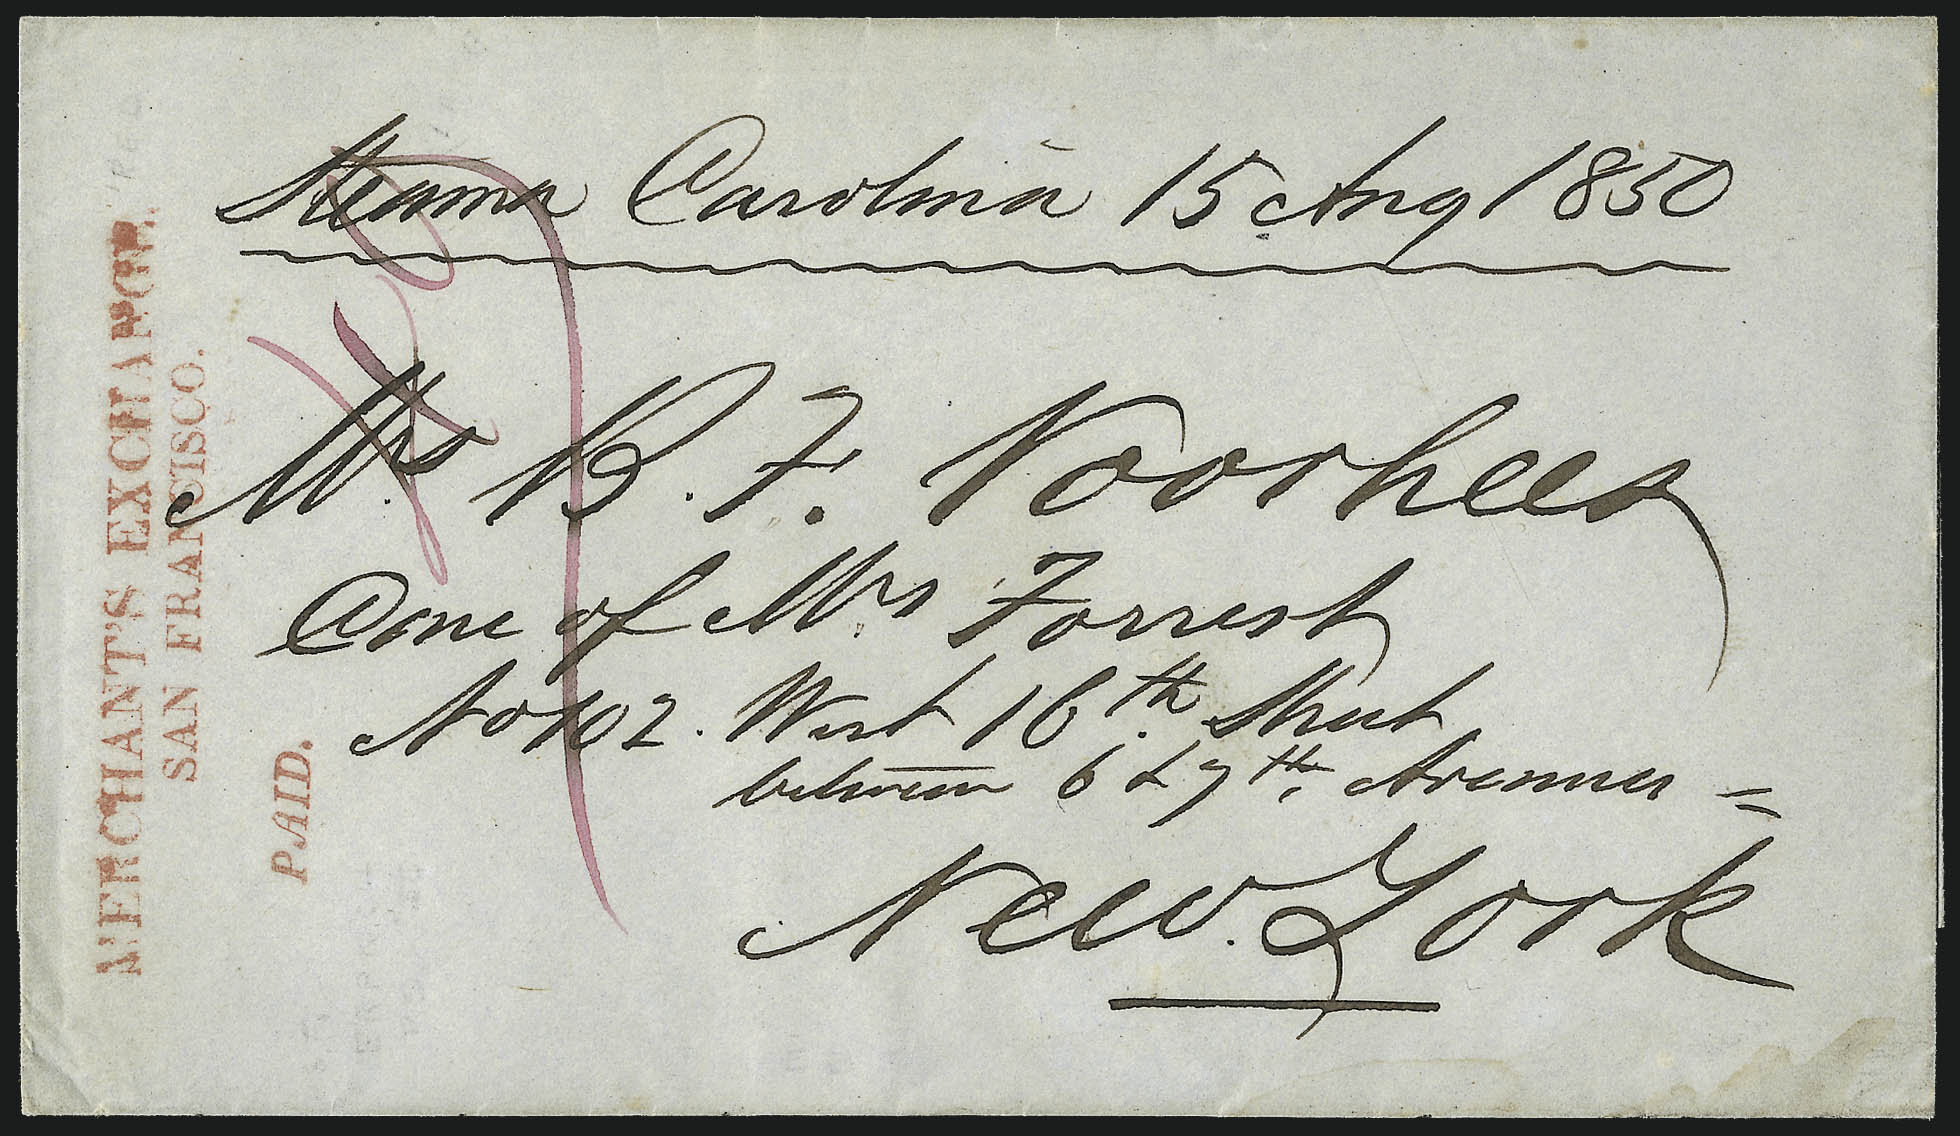 Steamer Carolina 15 Aug 1850
Mrs B. F. Voorhees
Care of Mrs Forrest
No 102. West 16th Street
between 6 & 7th Avenues =
New York
MERCHANT'S EXCHANGE.
SAN FRANCISCO.
PAID.